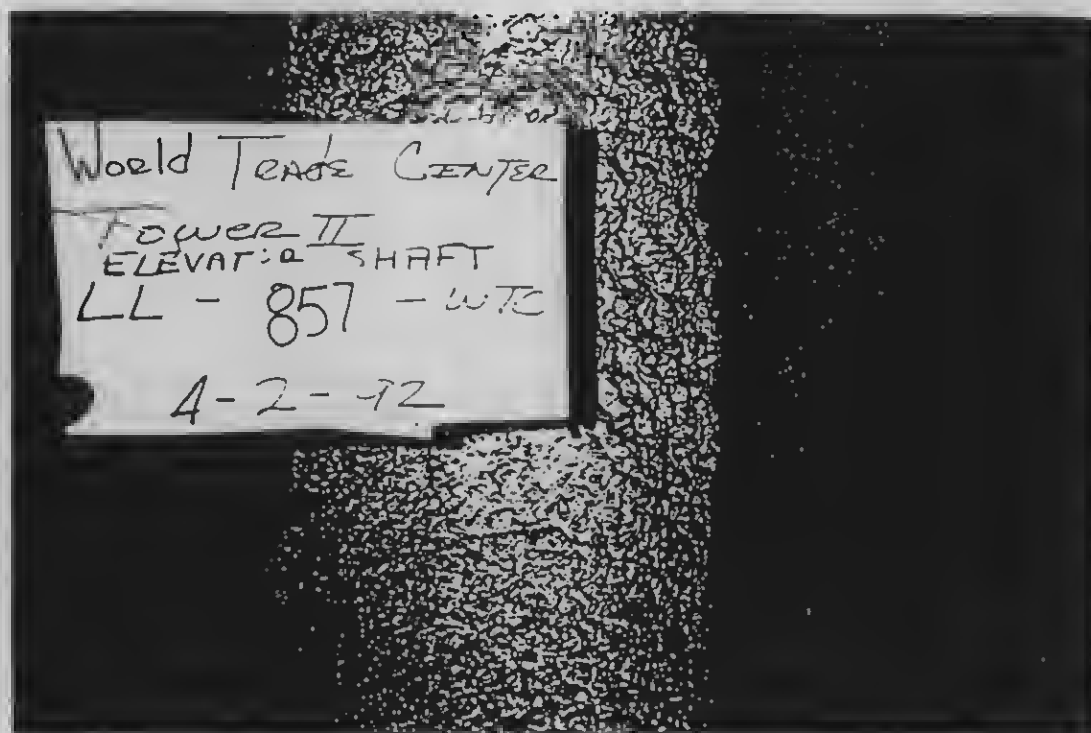 World Trade Center
Tower II
ELEVATOR SHAFT
LL - 857 - WTC
4-2-92